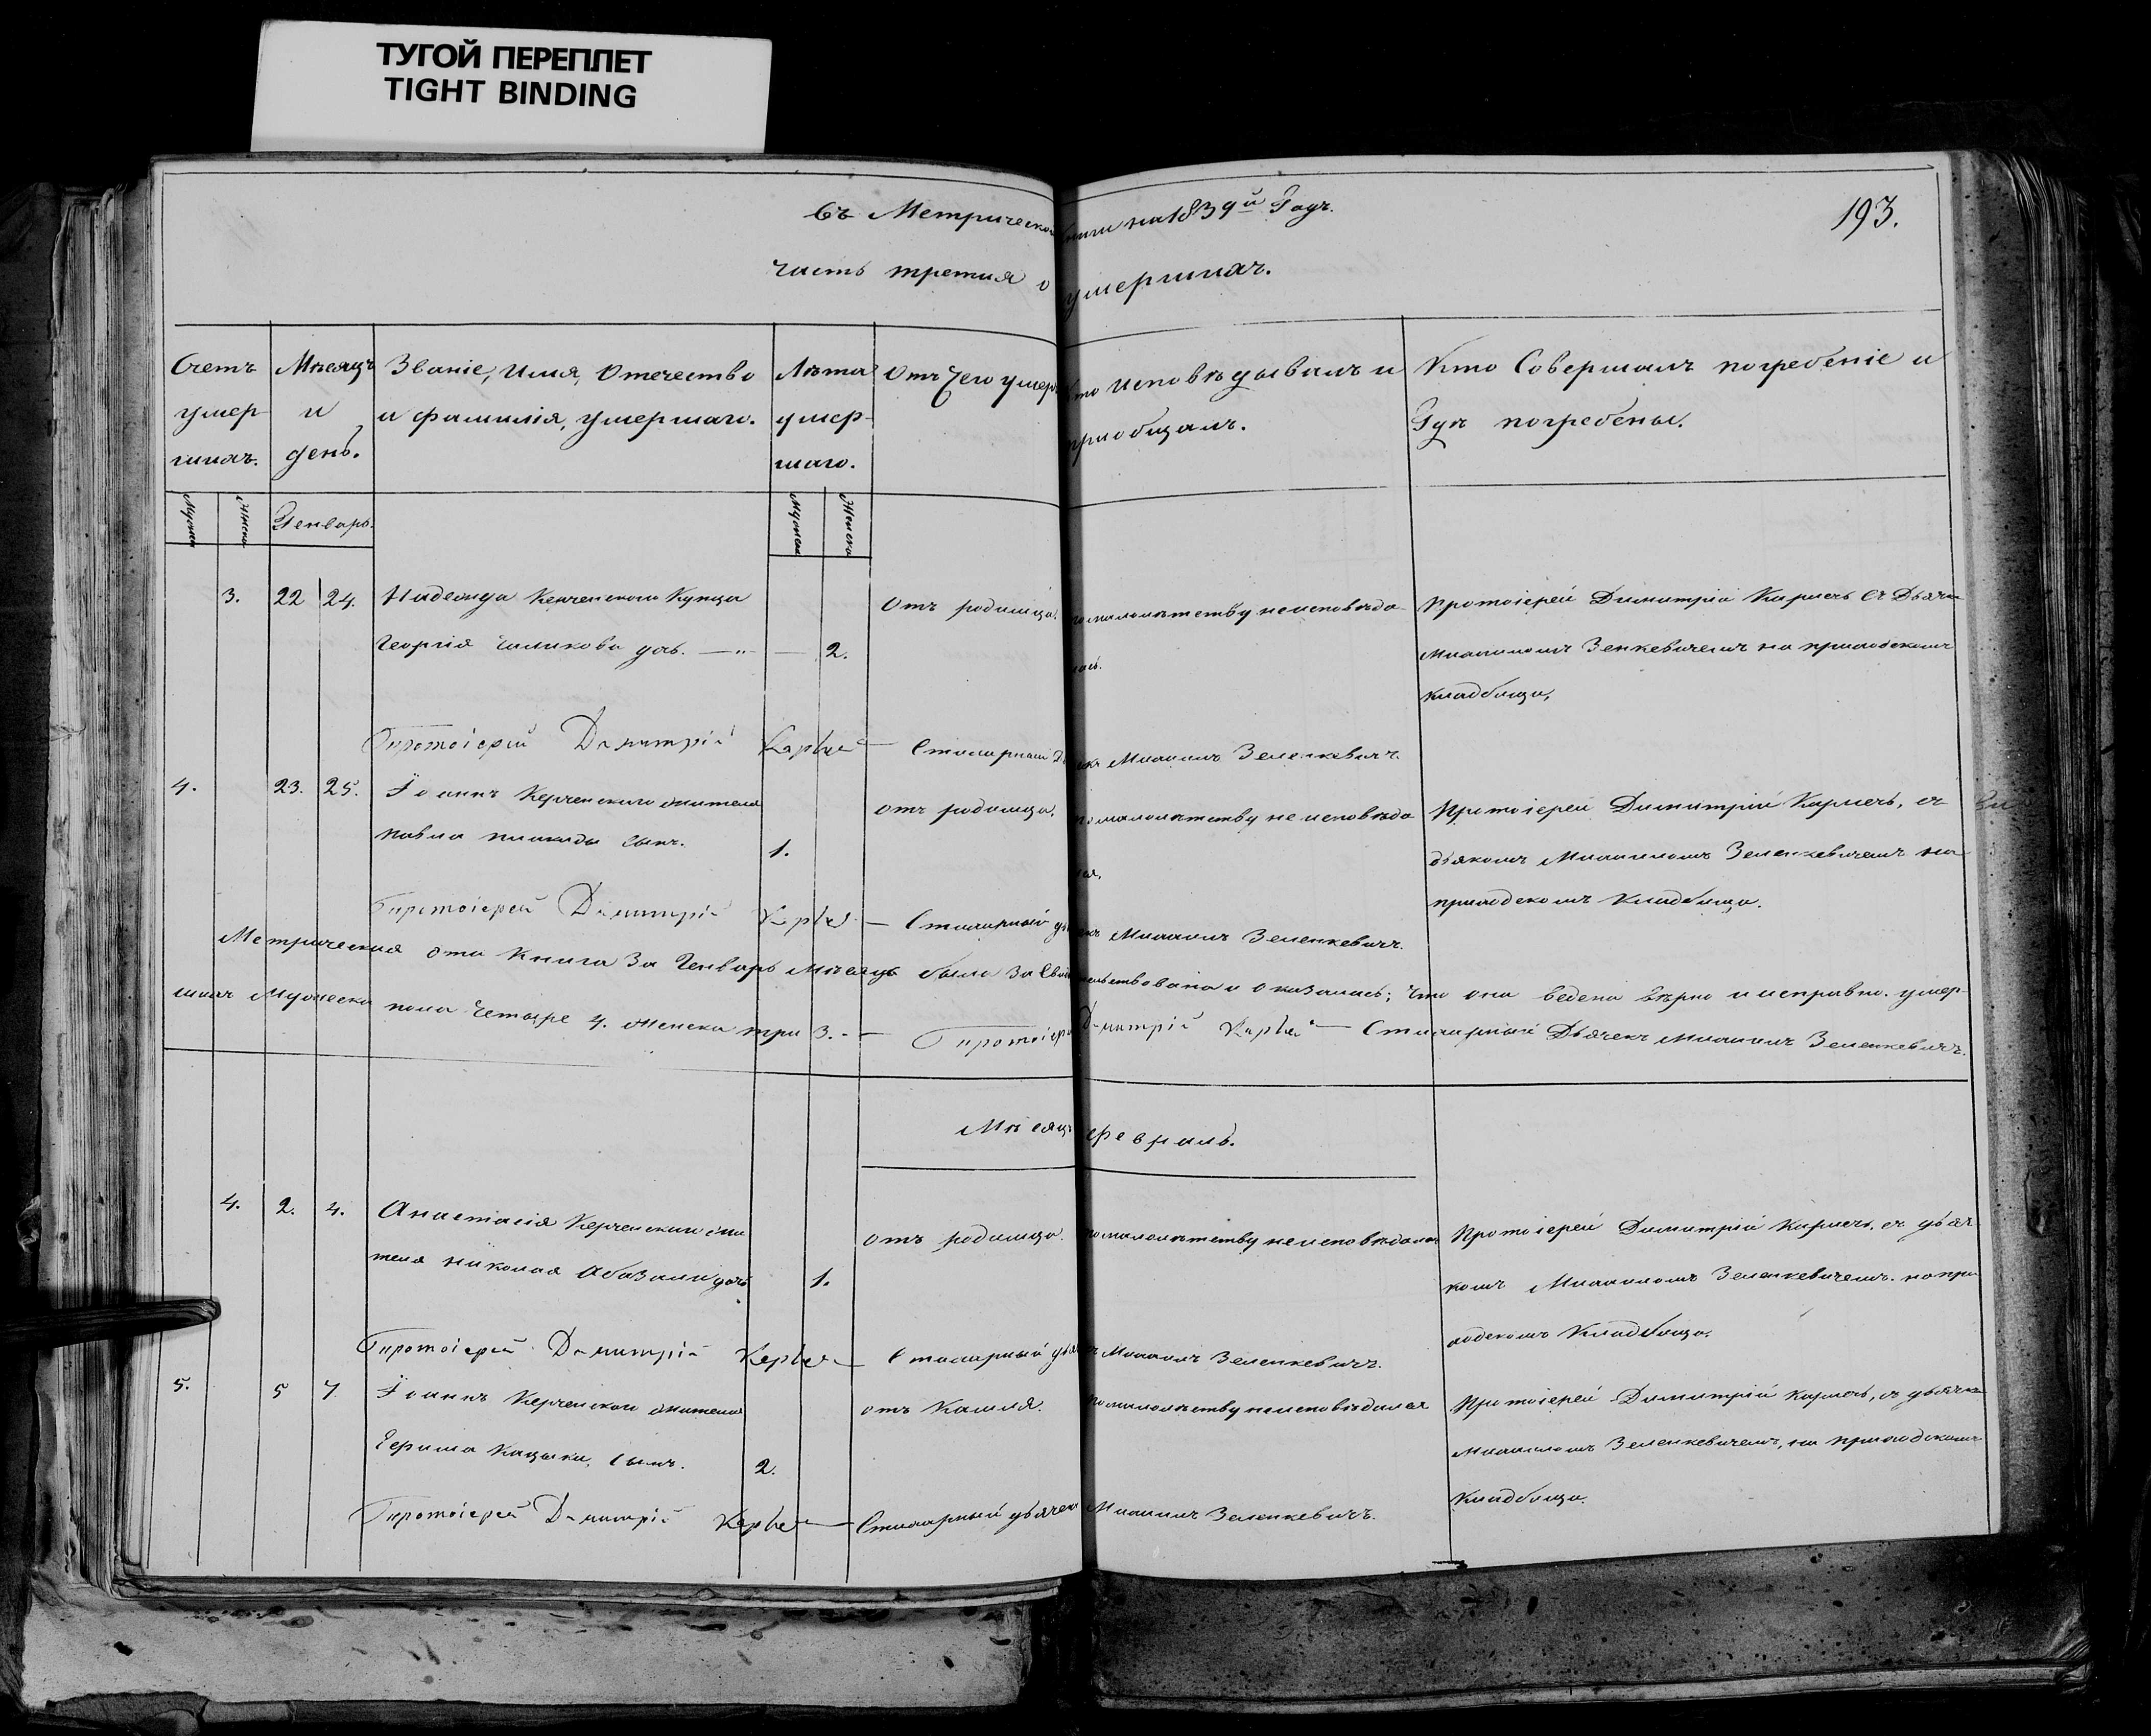 ТУГОЙ ПЕРЕПЛЕТ
TIGHT BINDING
193.
въ Метрической книги на 1839й Годъ.
часть третия о умершихъ.
Счетъ умер- шихъ.
Мѣсяцъ и день.
Званіе, Имя, Отечество и фамилія, умершаго.
Лѣта умер- шаго.
Отъ Чего умеръ
Кто Исповѣдывалъ и приобщалъ.
Кто Совершалъ погребеніе и Гдѣ погребены.
Мужеск Женска Генварь. Мужеск Женска
3. 22 24. Надежда Керченскаго Купца Отъ родимца. помалолѣтству неисповѣда- Протоіерей Димитрій Карпечъ съ Дьячк
Георгія дочь. — „ — 2. лась. Михаиломъ Зенкевичемъ на приходскомъ
Кладбище,
Протоіерей Димитрій — Стихарный Дьячекъ Михаилъ Зеленкевичъ.
4. 23. 25. Іоаннъ Керченскаго жителя отъ родимца. помалолѣтству не исповѣда Протоіерей Димитрій Карпечъ, съ
павла сынъ. 1. лся. дьякомъ Михаиломъ Зеленкевичемъ на
приходскомъ Кладбище.
Протоіерей Димитрій — Стихарный дьячекъ Михаилъ Зеленкевичъ.
Метрическая эта Книга За Генварь Мѣсяцъ была За Свидѣтельствована и оказалась; что она ведена вѣрно и исправно. умер-
шихъ Мужеска пола Четыре 4. Женска три 3. — Протоіерей Димитрій — Стихарный Дьячекъ Михаилъ Зеленкевичъ.
Мѣсяцъ февраль.
4. 2. 4. Анастасія Керченскаго жи отъ родимца. помалолѣтству неисповѣдалась Протоіерей Димитрій Карпечъ, съ дьяч-
теля Николая дочь 1. комъ Михаиломъ Зеленкевичемъ. на при
ходскомъ Кладбище.
Протоіерей Димитрій — Стихарный дьячекъ Михаилъ Зеленкевичъ.
5. 5 7. Іоаннъ Керченскаго жителя отъ Кашля. помалолѣтству неисповѣдался Протоіерей Димитрій Карпечъ, съ дьячко
сынъ. 2. Михаиломъ Зеленкевичемъ, на приходскомъ
Кладбище.
Протоіерей Димитрій — Стихарный дьячекъ Михаилъ Зеленкевичъ.